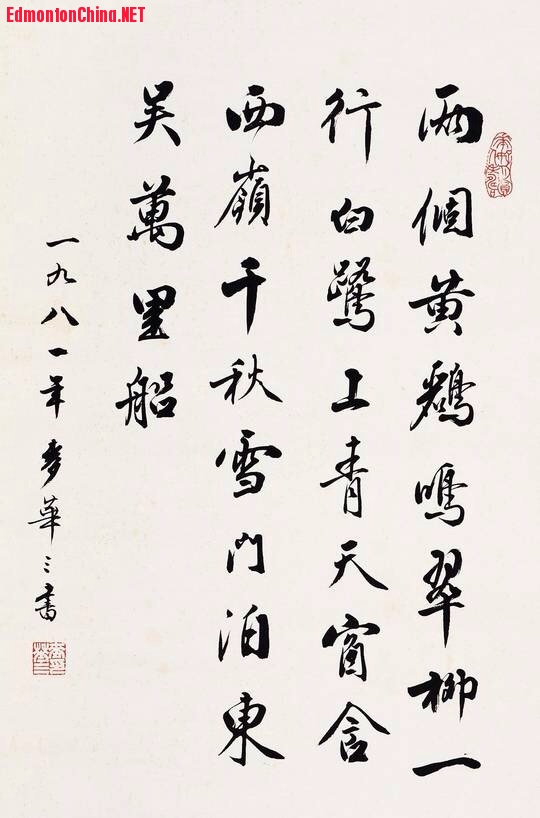 EdmontonChina.NET
兩個黄鸝鳴翠柳一
行白鷺上青天窗含
西嶺千秋雪門泊東
吴萬里船
一九八一年麥華三書